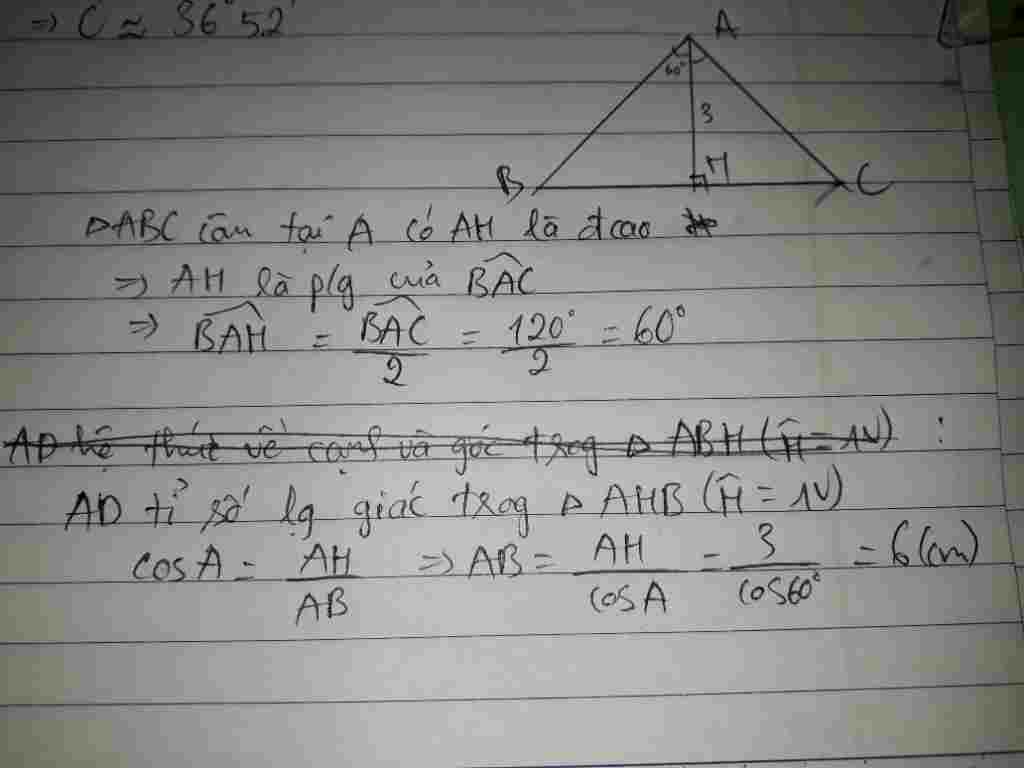 => C ≈ 36°52'
A
60°
3
B
H
C
△ABC cân tại A có AH là đcao
=> AH là p/g của BAC
=> BAH = BAC/2 = 120°/2 = 60°
AD hệ thức về cạnh và góc trog △ ABH (H = 1V) :
AD tỉ số lg giác trog △ AHB (H = 1V)
cosA = AH/AB => AB = AH/cosA = 3/cos60° = 6(cm)